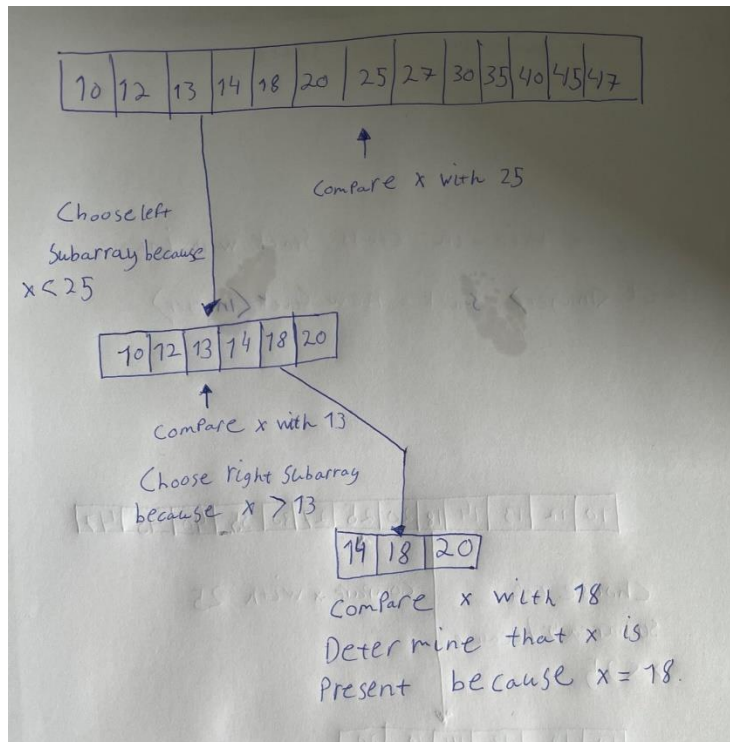 10 12 13 14 18 20 25 27 30 35 40 45 47
Compare x with 25
Choose left
Subarray because
x < 25
10 12 13 14 18 20
Compare x with 13
Choose right subarray
because x > 13
14 18 20
Compare x with 18
Determine that x is
Present because x = 18.